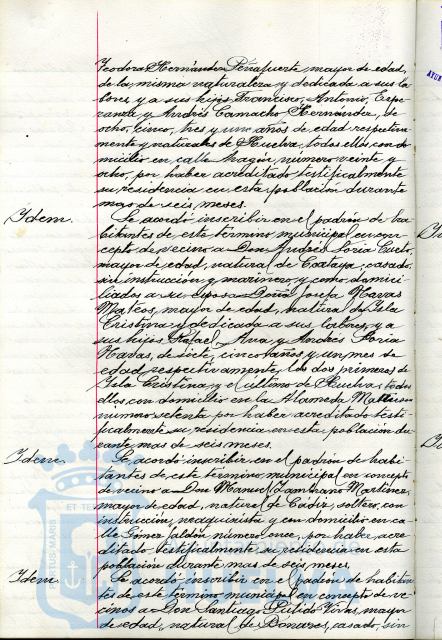 Teodora Hernández Peñafuerte, mayor de edad,
de la misma naturaleza y dedicada a sus la-
bores y a sus hijos Francisco, Antonio, Espe-
ranza y Andrés Camacho Hernández, de
ocho, cinco, tres y un años de edad respectiva-
mente y naturales de Huelva, todos ellos, con do-
micilio en calle Aragón, número veinte y
ocho, por haber acreditado testificalmente
su residencia en esta población durante
mas de seis meses.
Idem.
Se acordó inscribir en el padrón de ha-
bitantes de este término municipal en con-
cepto de vecino a Don Andrés Soria Cueto,
mayor de edad, natural de Cartaya, casado,
sin instrucción y marinero, y como domici-
liados a su esposa Doña Josefa Navas
Mateos, mayor de edad, natural de Isla
Cristina y dedicada a sus labores, y a
sus hijos Rafael, Ana y Andrés Soria
Navas, de siete, cinco años y un mes de
edad, respectivamente, los dos primeros de
Isla Cristina, y el último de Huelva, todos
ellos, con domicilio en la Alameda
número setenta por haber acreditado testi-
ficalmente su residencia en esta población du-
rante mas de seis meses.
Idem.
Se acordó inscribir en el padrón de habi-
tantes de este término municipal en concepto
de vecino a Don Manuel Zambrano Martínez,
mayor de edad, natural de Cádiz, soltero, con
instrucción, maquinista y con domicilio en ca-
lle Gómez Jaldón, número once, por haber acre-
ditado testificalmente, su residencia en esta
población durante mas de seis meses.
Idem.
Se acordó inscribir en el padrón de habitan-
tes de este término municipal en concepto de ve-
cinos a Don Santiago Pulido Vivas, mayor
de edad, natural de Bonares, casado, sin
PORTUS MARIS
ET TE